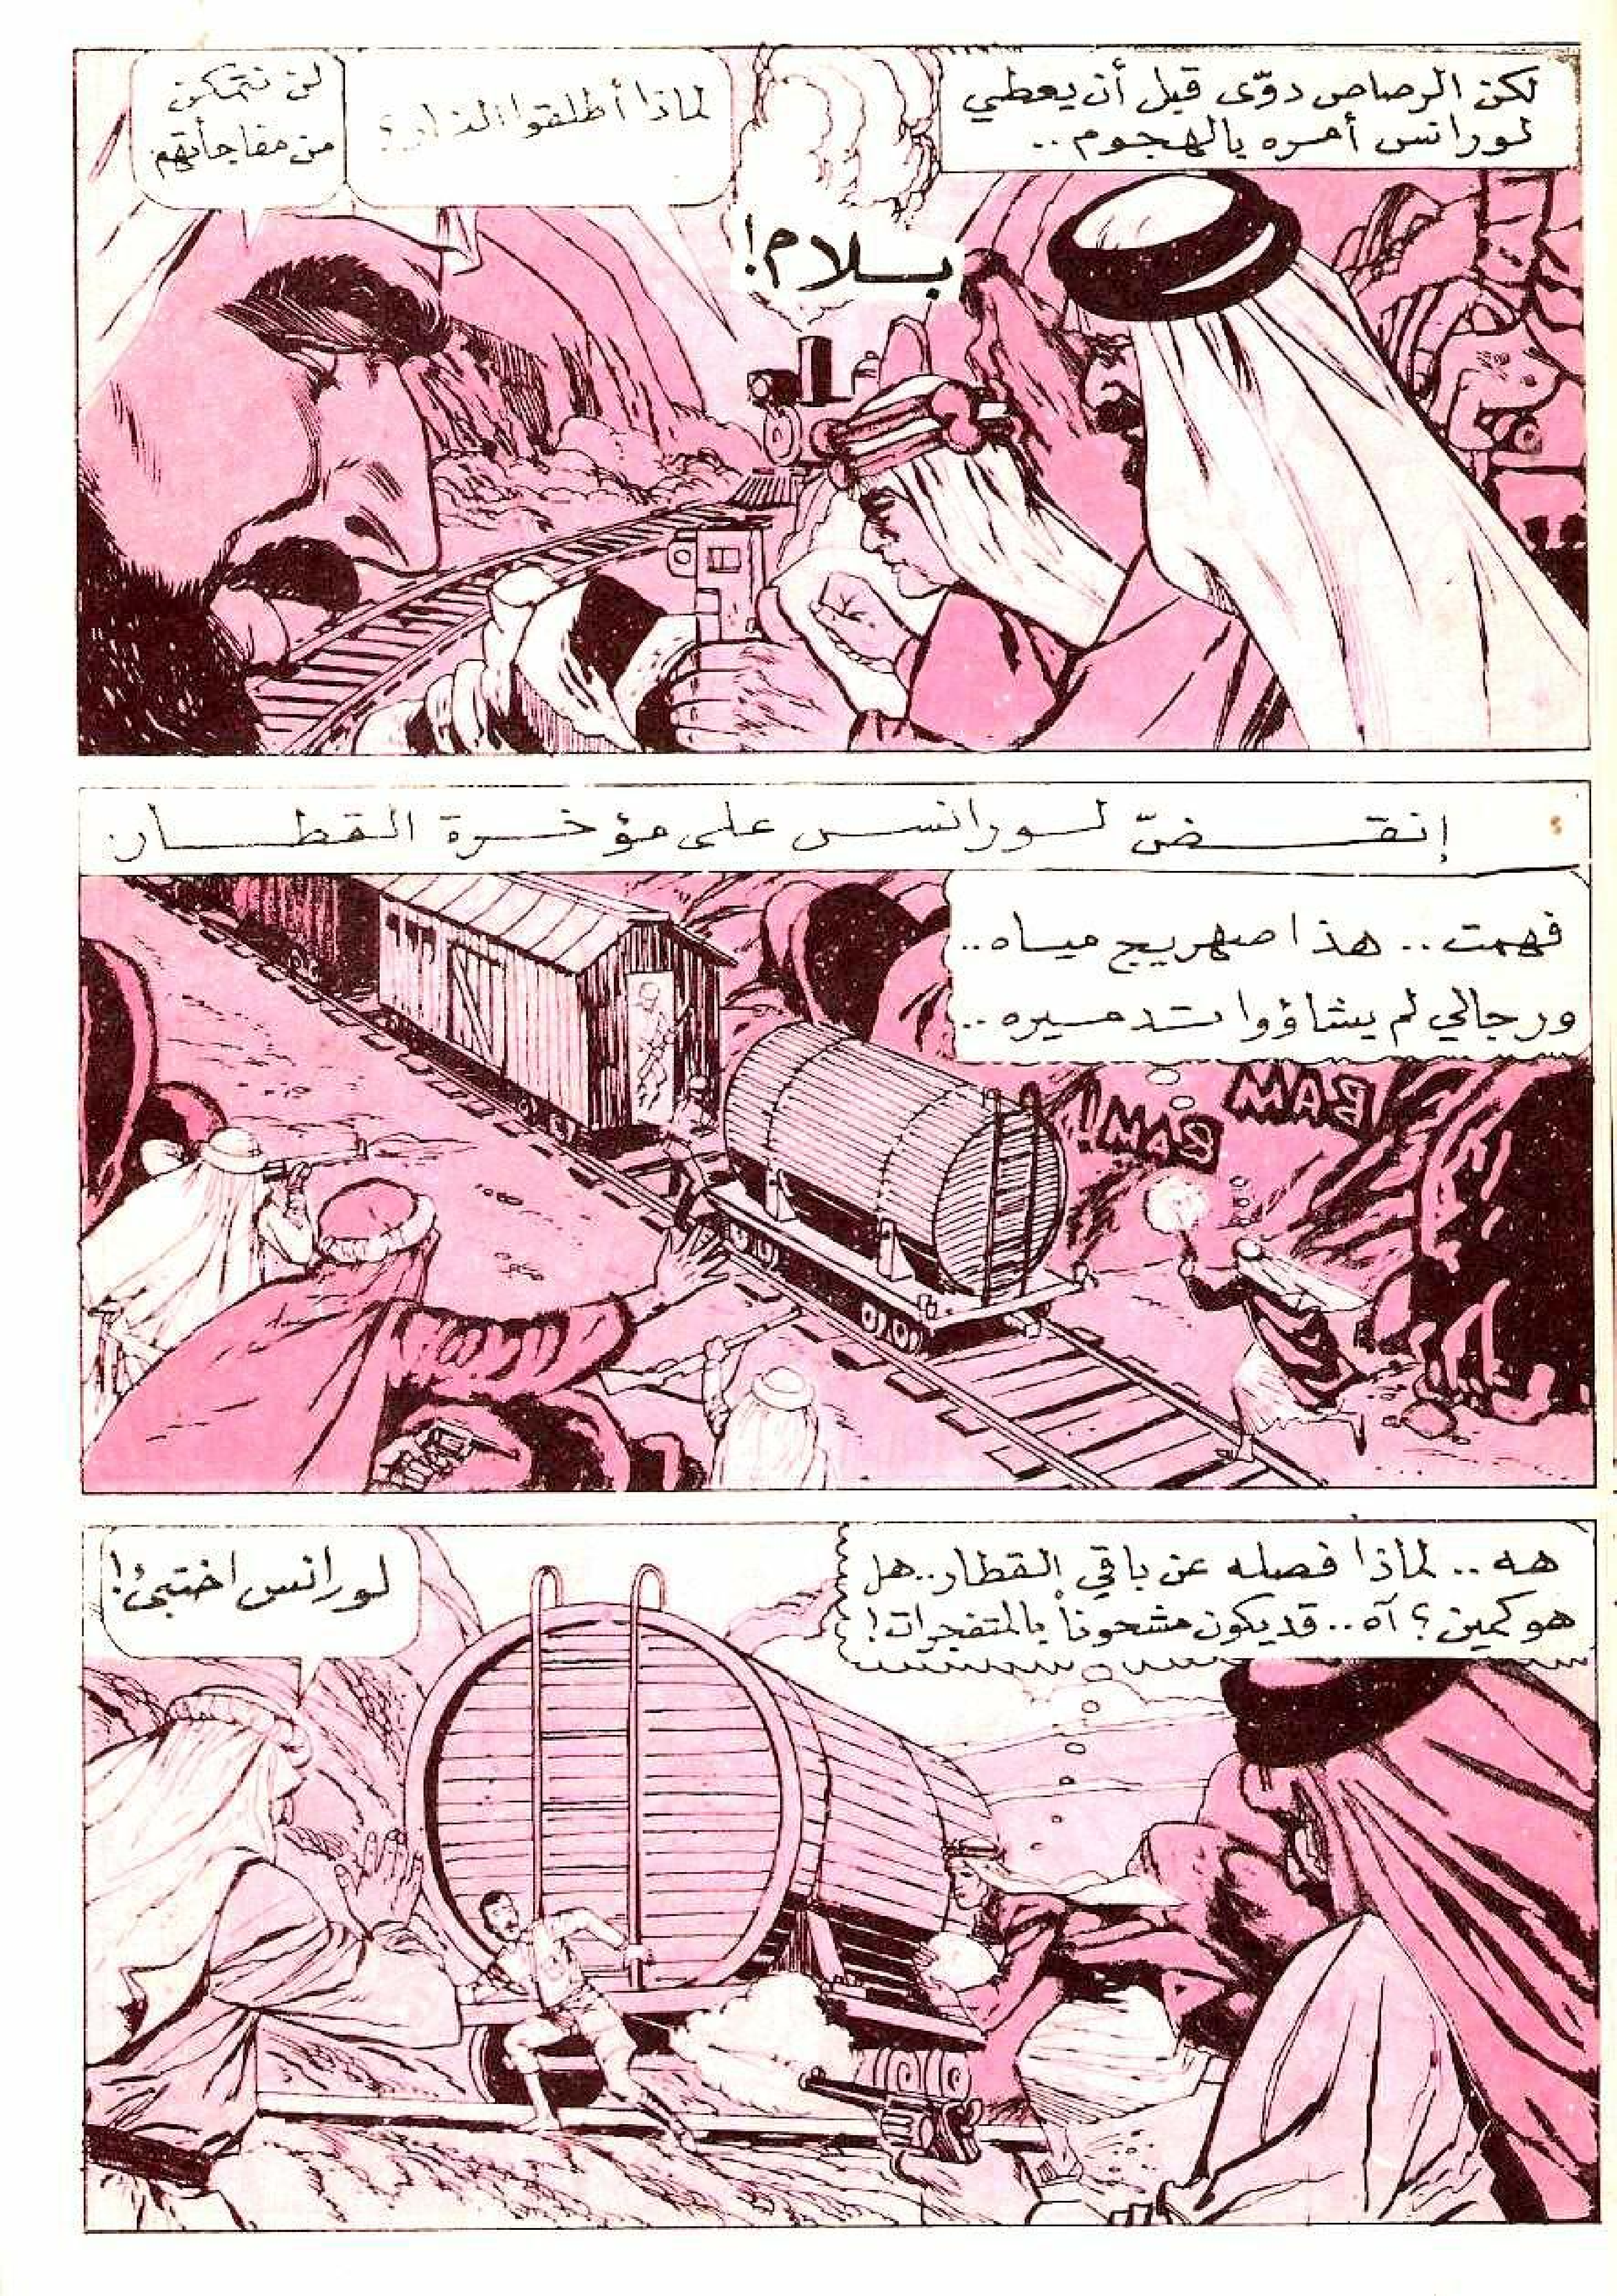 لكن الرصاص دوّى قبل أن يعطي
لورانس أمره بالهجوم ..
لماذا أطلقوا النار؟
لن نتمكن
من مفاجأتهم
بلام!
إنقضّ لورانس على مؤخرة القطار
فهمت .. هذا صهريج مياه ..
ورجالي لم يشاؤوا تدميره ..
BAM
BAM
هه .. لماذا فصله عن باقي القطار .. هل
هو كمين؟ آه .. قد يكون مشحوناً بالمتفجرات!
لورانس اختبئ!